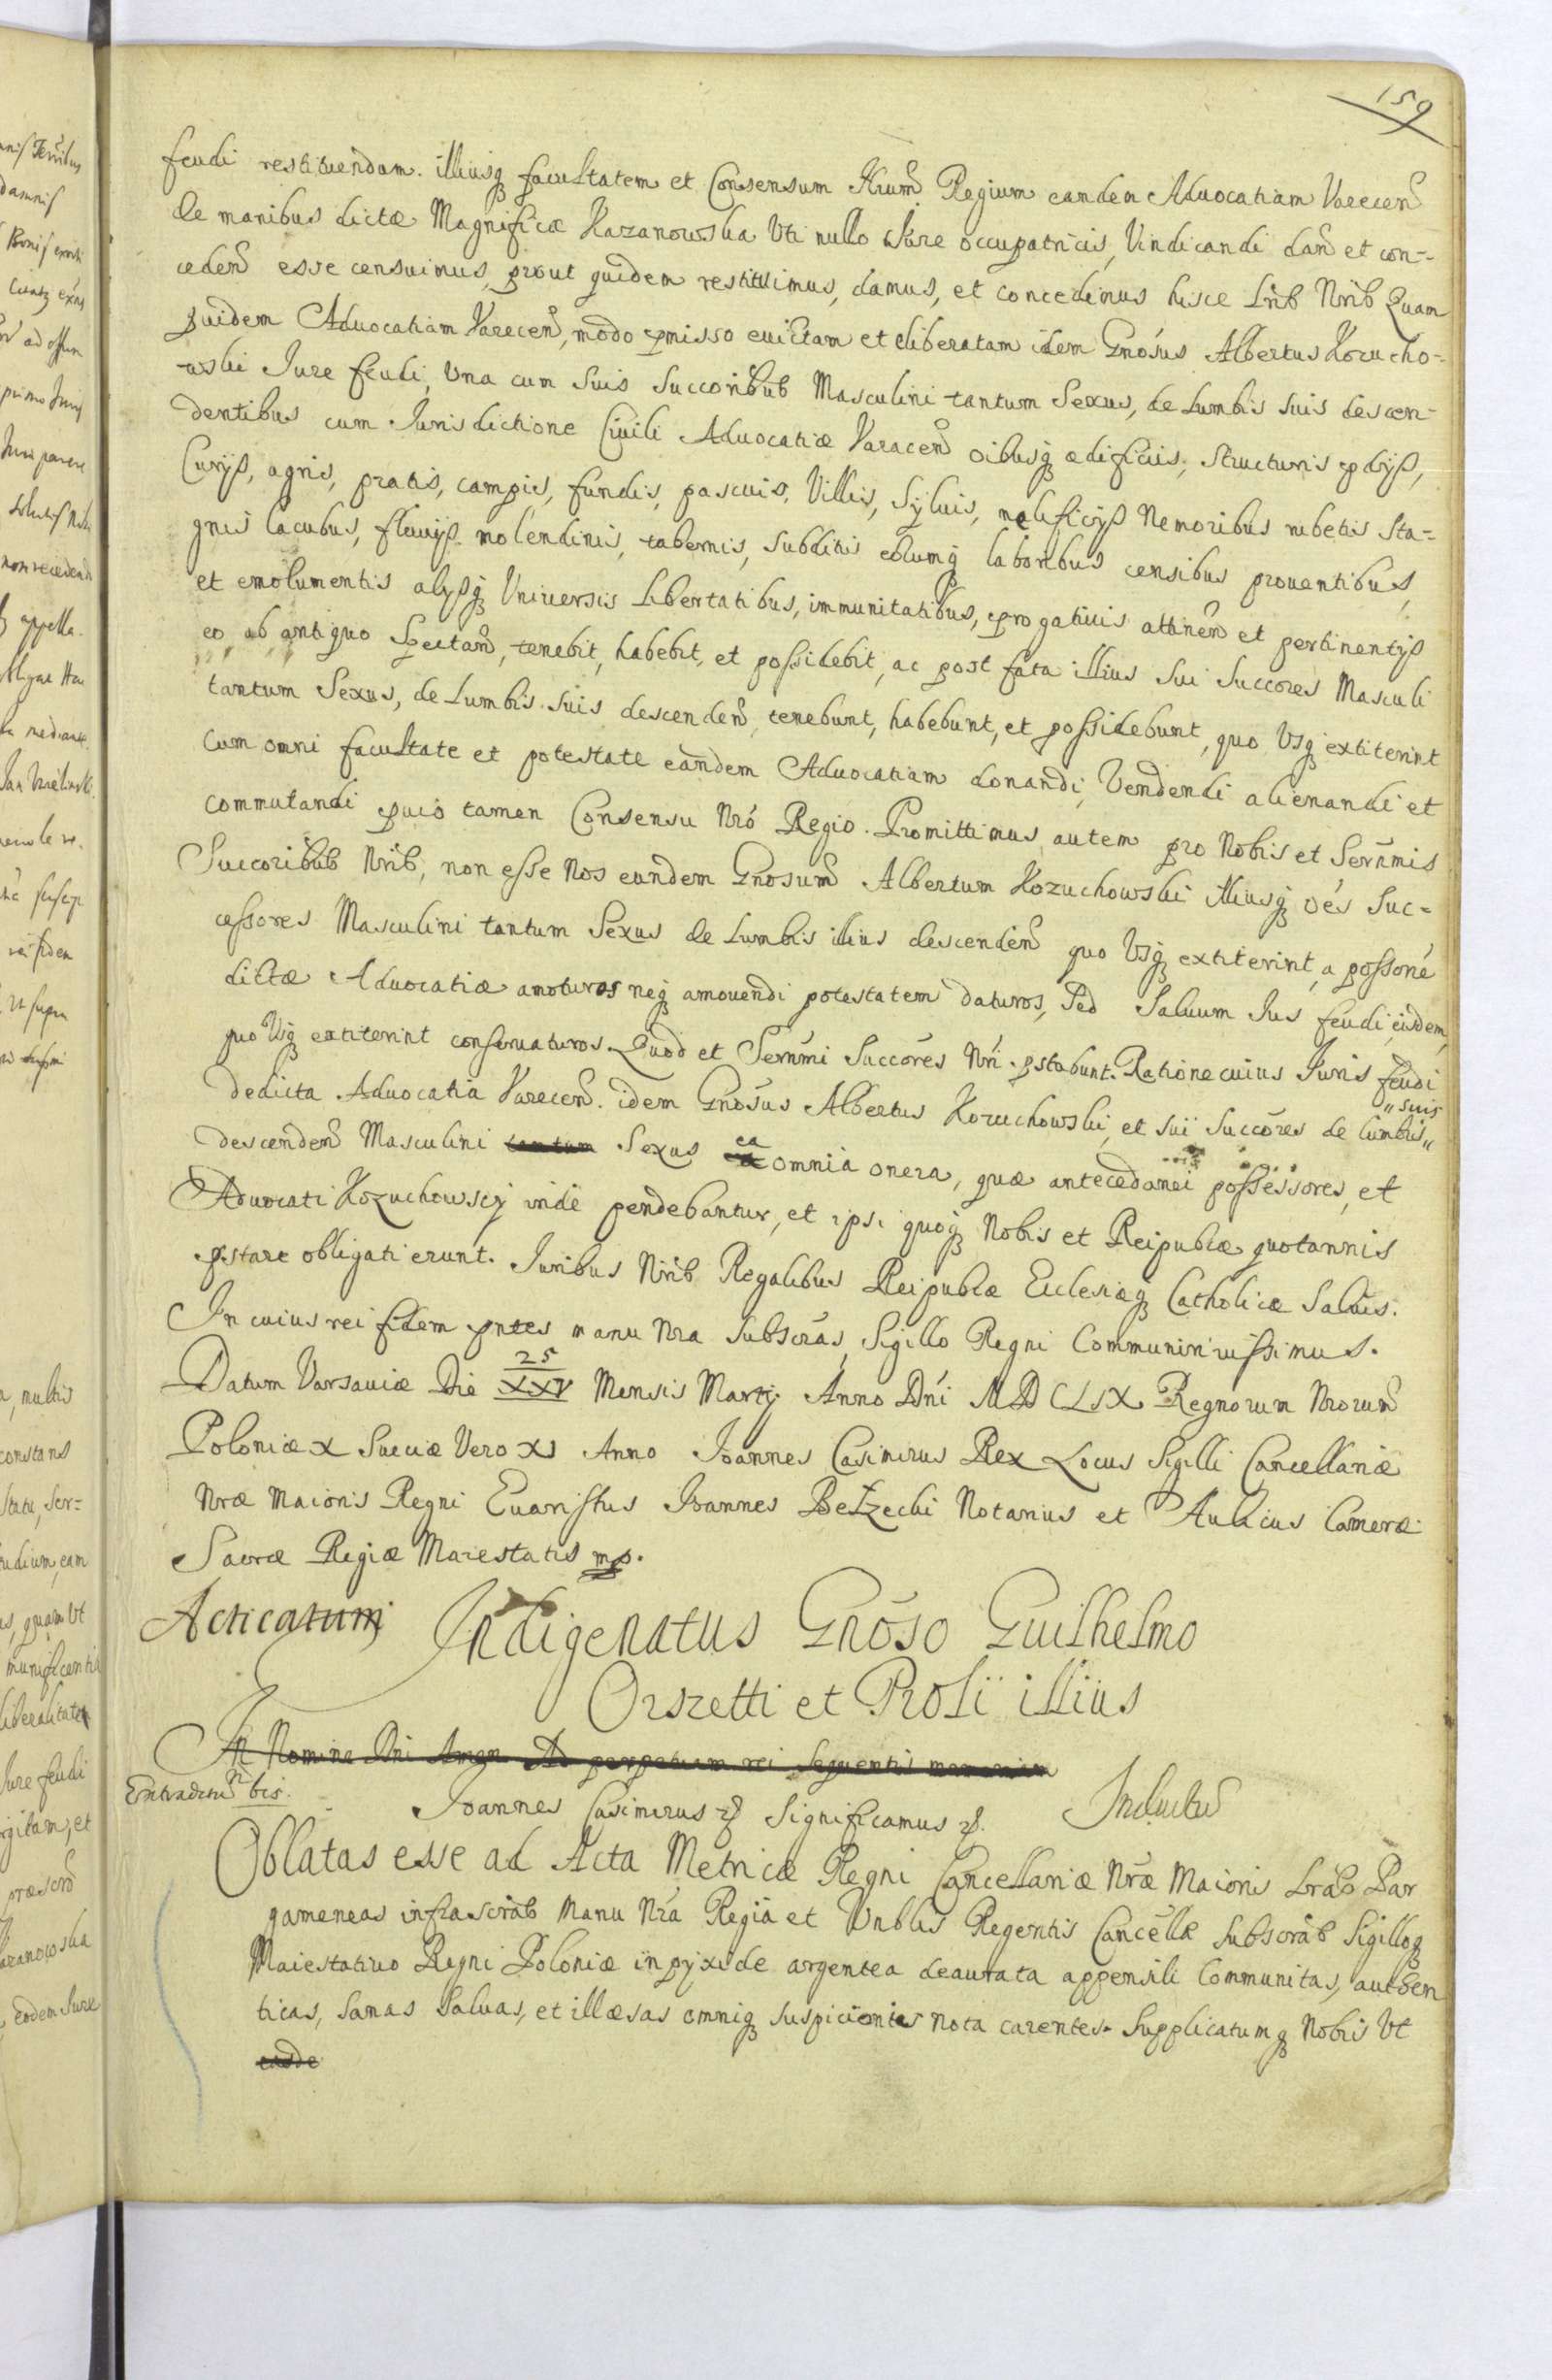 159
feudi restituendam. illiusq facultatem et Consensum Nrum Regium eandem Aduocatiam Varecen
de manibus dictæ Magnificæ Kazanowska Uti nullo Jure occupatricis, Vindicandi dan et con-
ceden esse censuimus, prout quidem restituimus, damus, et concedimus hisce Lrib Nrib Quam
quidem Aduocatiam Varecen, modo pmisso euictam et liberatam idem Gnosus Albertus Kozucho-
wski Jure feudi, Una cum Suis Succoribub Masculini tantum Sexus, de Lumbis suis descen-
dentibus cum Jurisdictione Ciuili Aduocatiæ Varacen oibusq ædificiis, structuris pdijs,
Curijs, agris, pratis, campis, fundis, pascuis, Villis, Syluis, melificijs Nemoribus rubetis Sta-
gnis lacubus, fluuijs molendinis, tabernis, Subditis eorumq laboribus censibus prouentibus,
et emolumentis alijsq Uniuersis Libertatibus, immunitatibus, progatiuis attinen et pertinentijs
eo ab antiquo Spectan, tenebit, habebit, et possidebit, ac post fata illius Sui Succores Masculi
tantum Sexus, de Lumbis Suis descenden, tenebunt, habebunt, et possidebunt, quo Usq extiterint
Cum omni facultate et potestate eandem Aduocatiam donandi, Vendendi alienandi et
commutandi puio tamen Consensu Nro Regio. Promittimus autem pro Nobis et Serenmis
Succoribub Nrib, non esse Nos eundem Gnosum Albertum Kozuchowski illiusq oes Suc-
cessores Masculini tantum Sexus de Lumbis illius descenden quo Usq extiterint, a possone
dictæ Aduocatiæ amoturos neq amouendi potestatem daturos, Sed Saluum Jus feudi, eisdem,
quo Usq extiterint conseruaturos. Quod et Sernmi Succores Nri pstabunt. Ratione cuius Juris feudi
"suis
dedicta Aduocatia Varecen. idem Gnosus Albertus Kozuchowski, et sui Succores de lumbis"
descenden Masculini tantum Sexus ea omnia onera, quæ antecedanei possessores, et
Aduocati Kozuchowscy inde pendebantur, et ipsi quoq Nobis et Reipublæ quotannis
pstare obligati erunt. Juribus Nrib Regalibus Reipublæ Ecclesiæq Catholicæ Saluis.
In cuius rei fidem pntes manu Nra Subscras, Sigillo Regni Communiri iussimus.
25
Datum Varsauiæ Die XXV Mensis Martij Anno Dni MDCLIX Regnorum Nrorum
Poloniæ X Sueciæ Vero XI Anno Joannes Casimirus Rex Locus Sigilli Cancellariæ
Nræ Maioris Regni Euaristus Joannes Bełzecki Notarius et Aulicus Cameræ
Sacræ Regiæ Maiestatis mp.
Acticatum Indigenatus Gnoso Guilhelmo
Orszetti et Proli illius
In Nomine Dni Amen Ad perpetuam rei Sequentis memoriam
bis. Joannes Casimirus Significamus Inductum
Oblatas esse ad Acta Metricæ Regni Cancellariæ Nræ Maioris Lrab Par
gameneas infrascrab Manu Nra Regia et Vnblis Regentis Cancellæ Subscrab Sigilloq
Maiestatiuo Regni Poloniæ in pyxide argentea deaurata appensili Communitas, authen
ticas, Sanas Saluas, et illæsas omniq Suspicionis Nota carentes. Supplicatumq Nobis Ut
easde